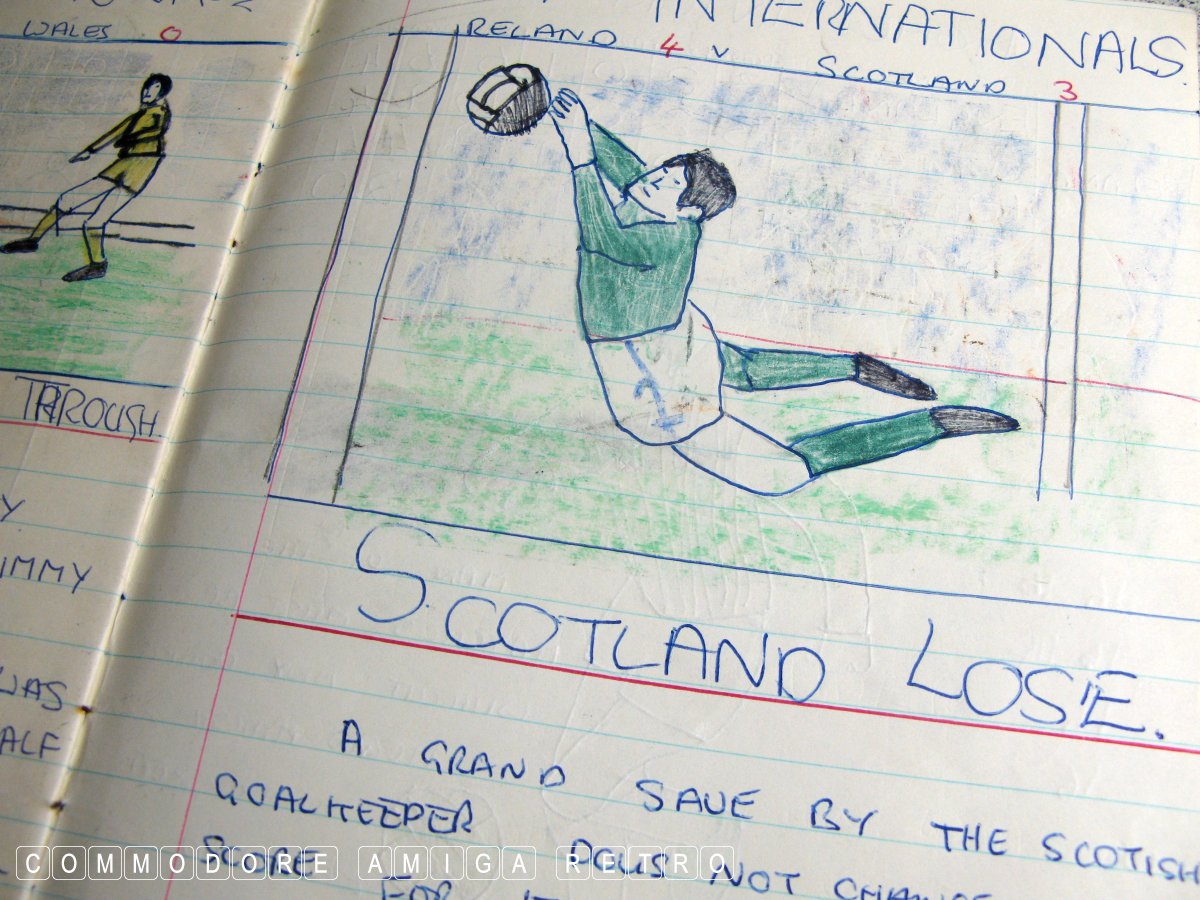 WALES 0
THROUGH
Y
IMMY
WAS
ALF
INTERNATIONALS
IRELAND 4 V SCOTLAND 3
SCOTLAND LOSE.
A GRAND SAVE BY THE SCOTISH
GOALKEEPER
SCORE NOT
FOR
COMMODORE AMIGA RETRO